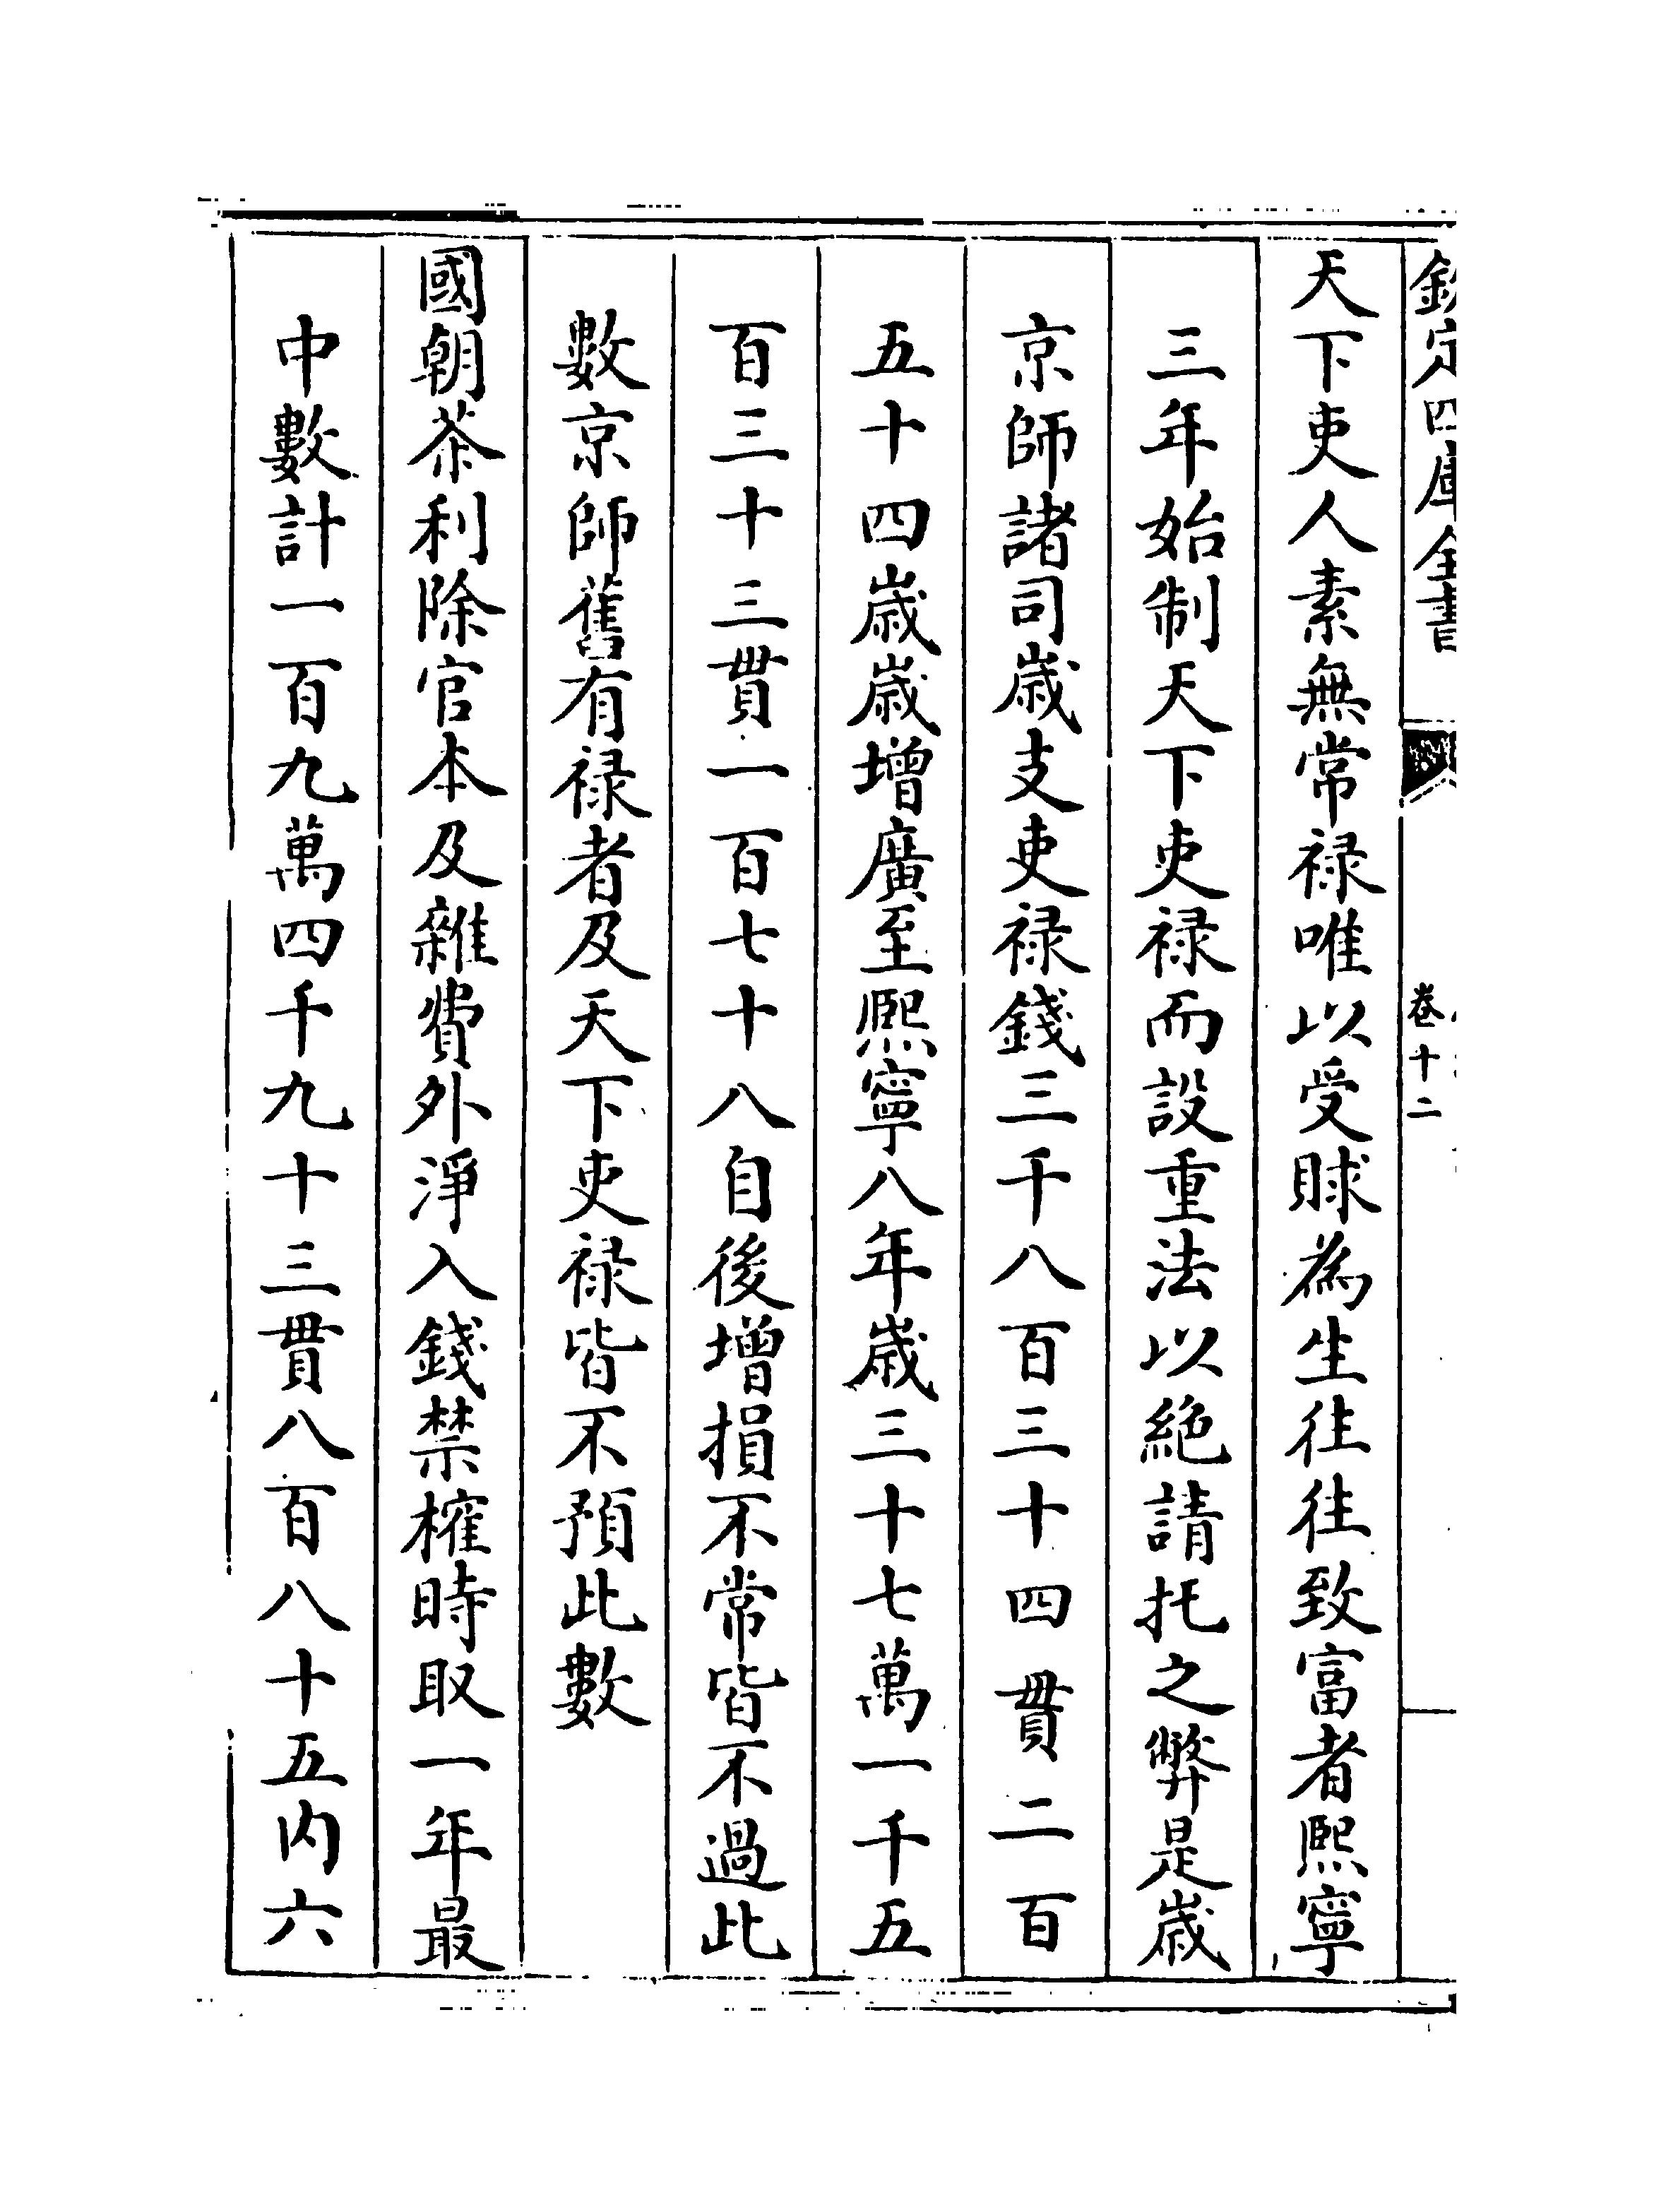 欽定四庫全書
卷十二
天下吏人素無常禄唯以受賕為生往往致富者熙寧
三年始制天下吏禄而設重法以絶請托之弊是嵗
京師諸司嵗支吏禄錢三千八百三十四貫二百
五十四嵗嵗增廣至熙寧八年嵗三十七萬一千五
百三十三貫一百七十八自後增損不常皆不過此
數京師舊有禄者及天下吏禄皆不預此數
國朝茶利除官本及雜費外淨入錢禁榷時取一年最
中數計一百九萬四千九十三貫八百八十五内六